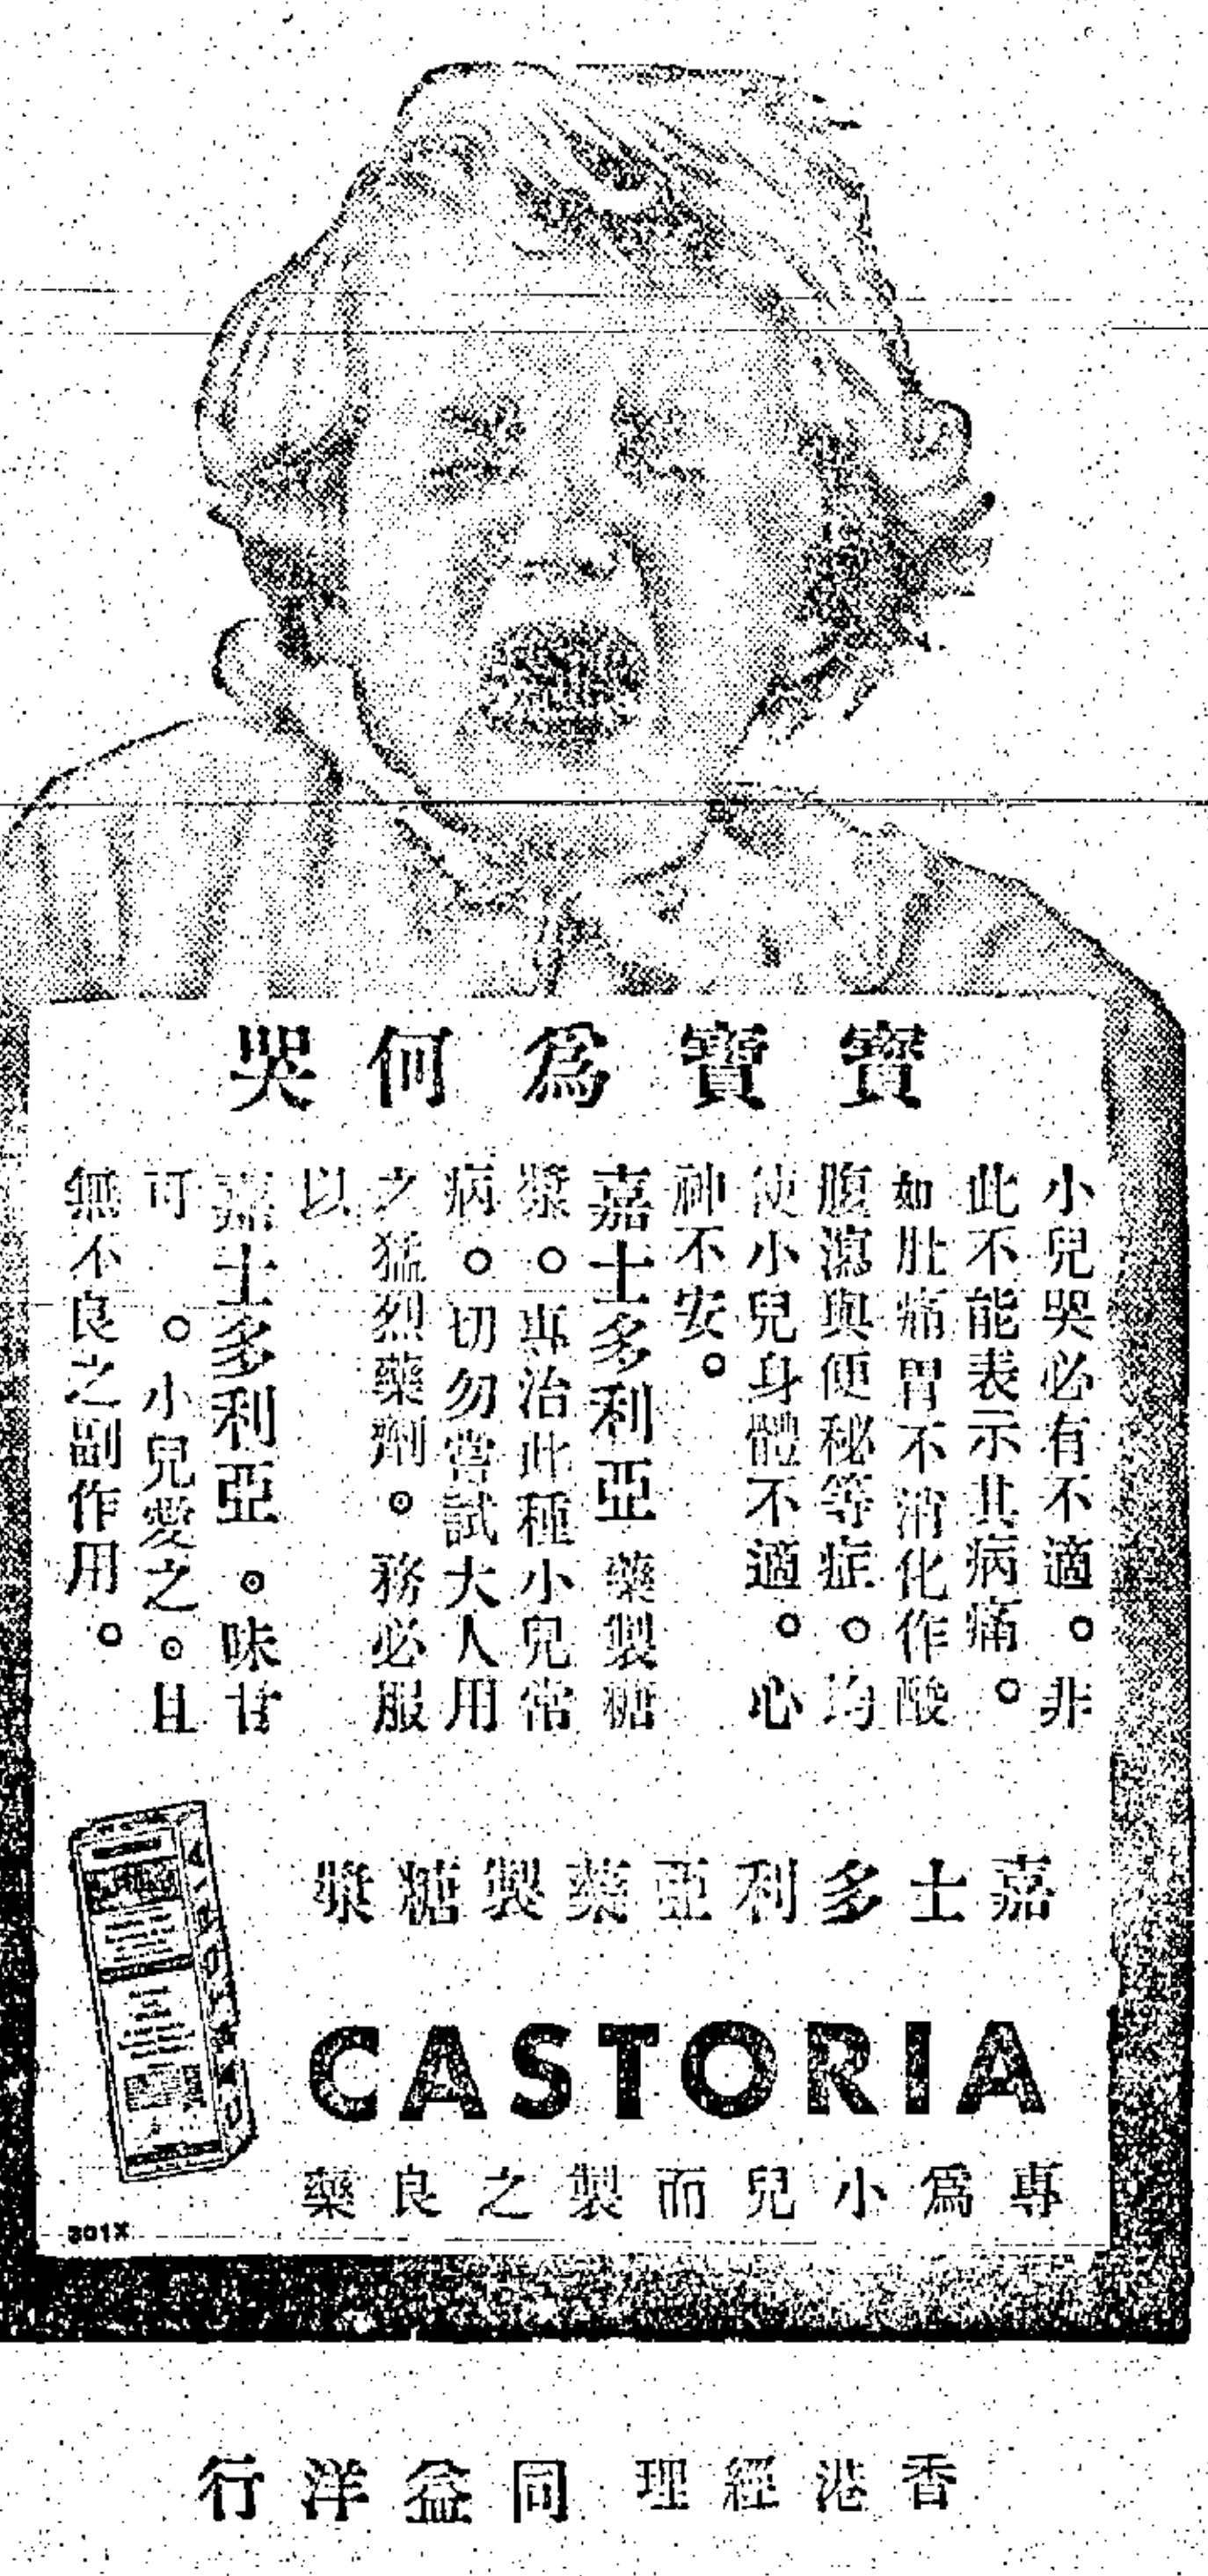 寶寶爲何哭
小兒哭必有不適。非
此不能表示其病痛。
如肚痛胃不消化作酸
腹瀉與便秘等症。均
使小兒身體不適。心
神不安。
嘉士多利亞藥製糖
漿。專治此種小兒常
病。切勿嘗試大人用
之猛烈藥劑。務必服
以
嘉士多利亞。味甘
可。小兒愛之。且
無不良之副作用。
嘉士多利亞藥製糖漿
CASTORIA
專爲小兒而製之良藥
301X
香港經理 同益洋行